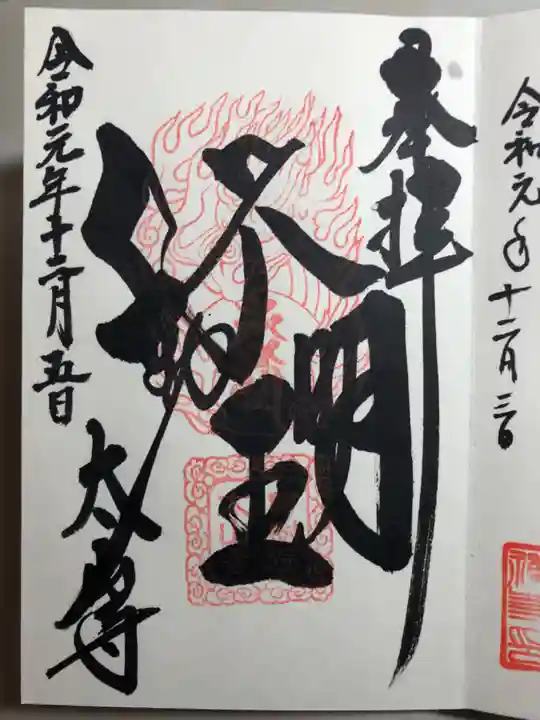 令和元年十二月三日
奉拝
不動明王
令和元年十二月五日